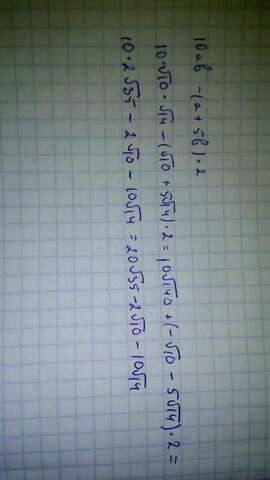 10ab - (a + 5b) · 2
10·√10 · √14 - (√10 + 5√14) · 2 = 10√140 + (-√10 - 5√14) · 2 =
10 · 2√35 - 2√10 - 10√14 = 20√35 - 2√10 - 10√14